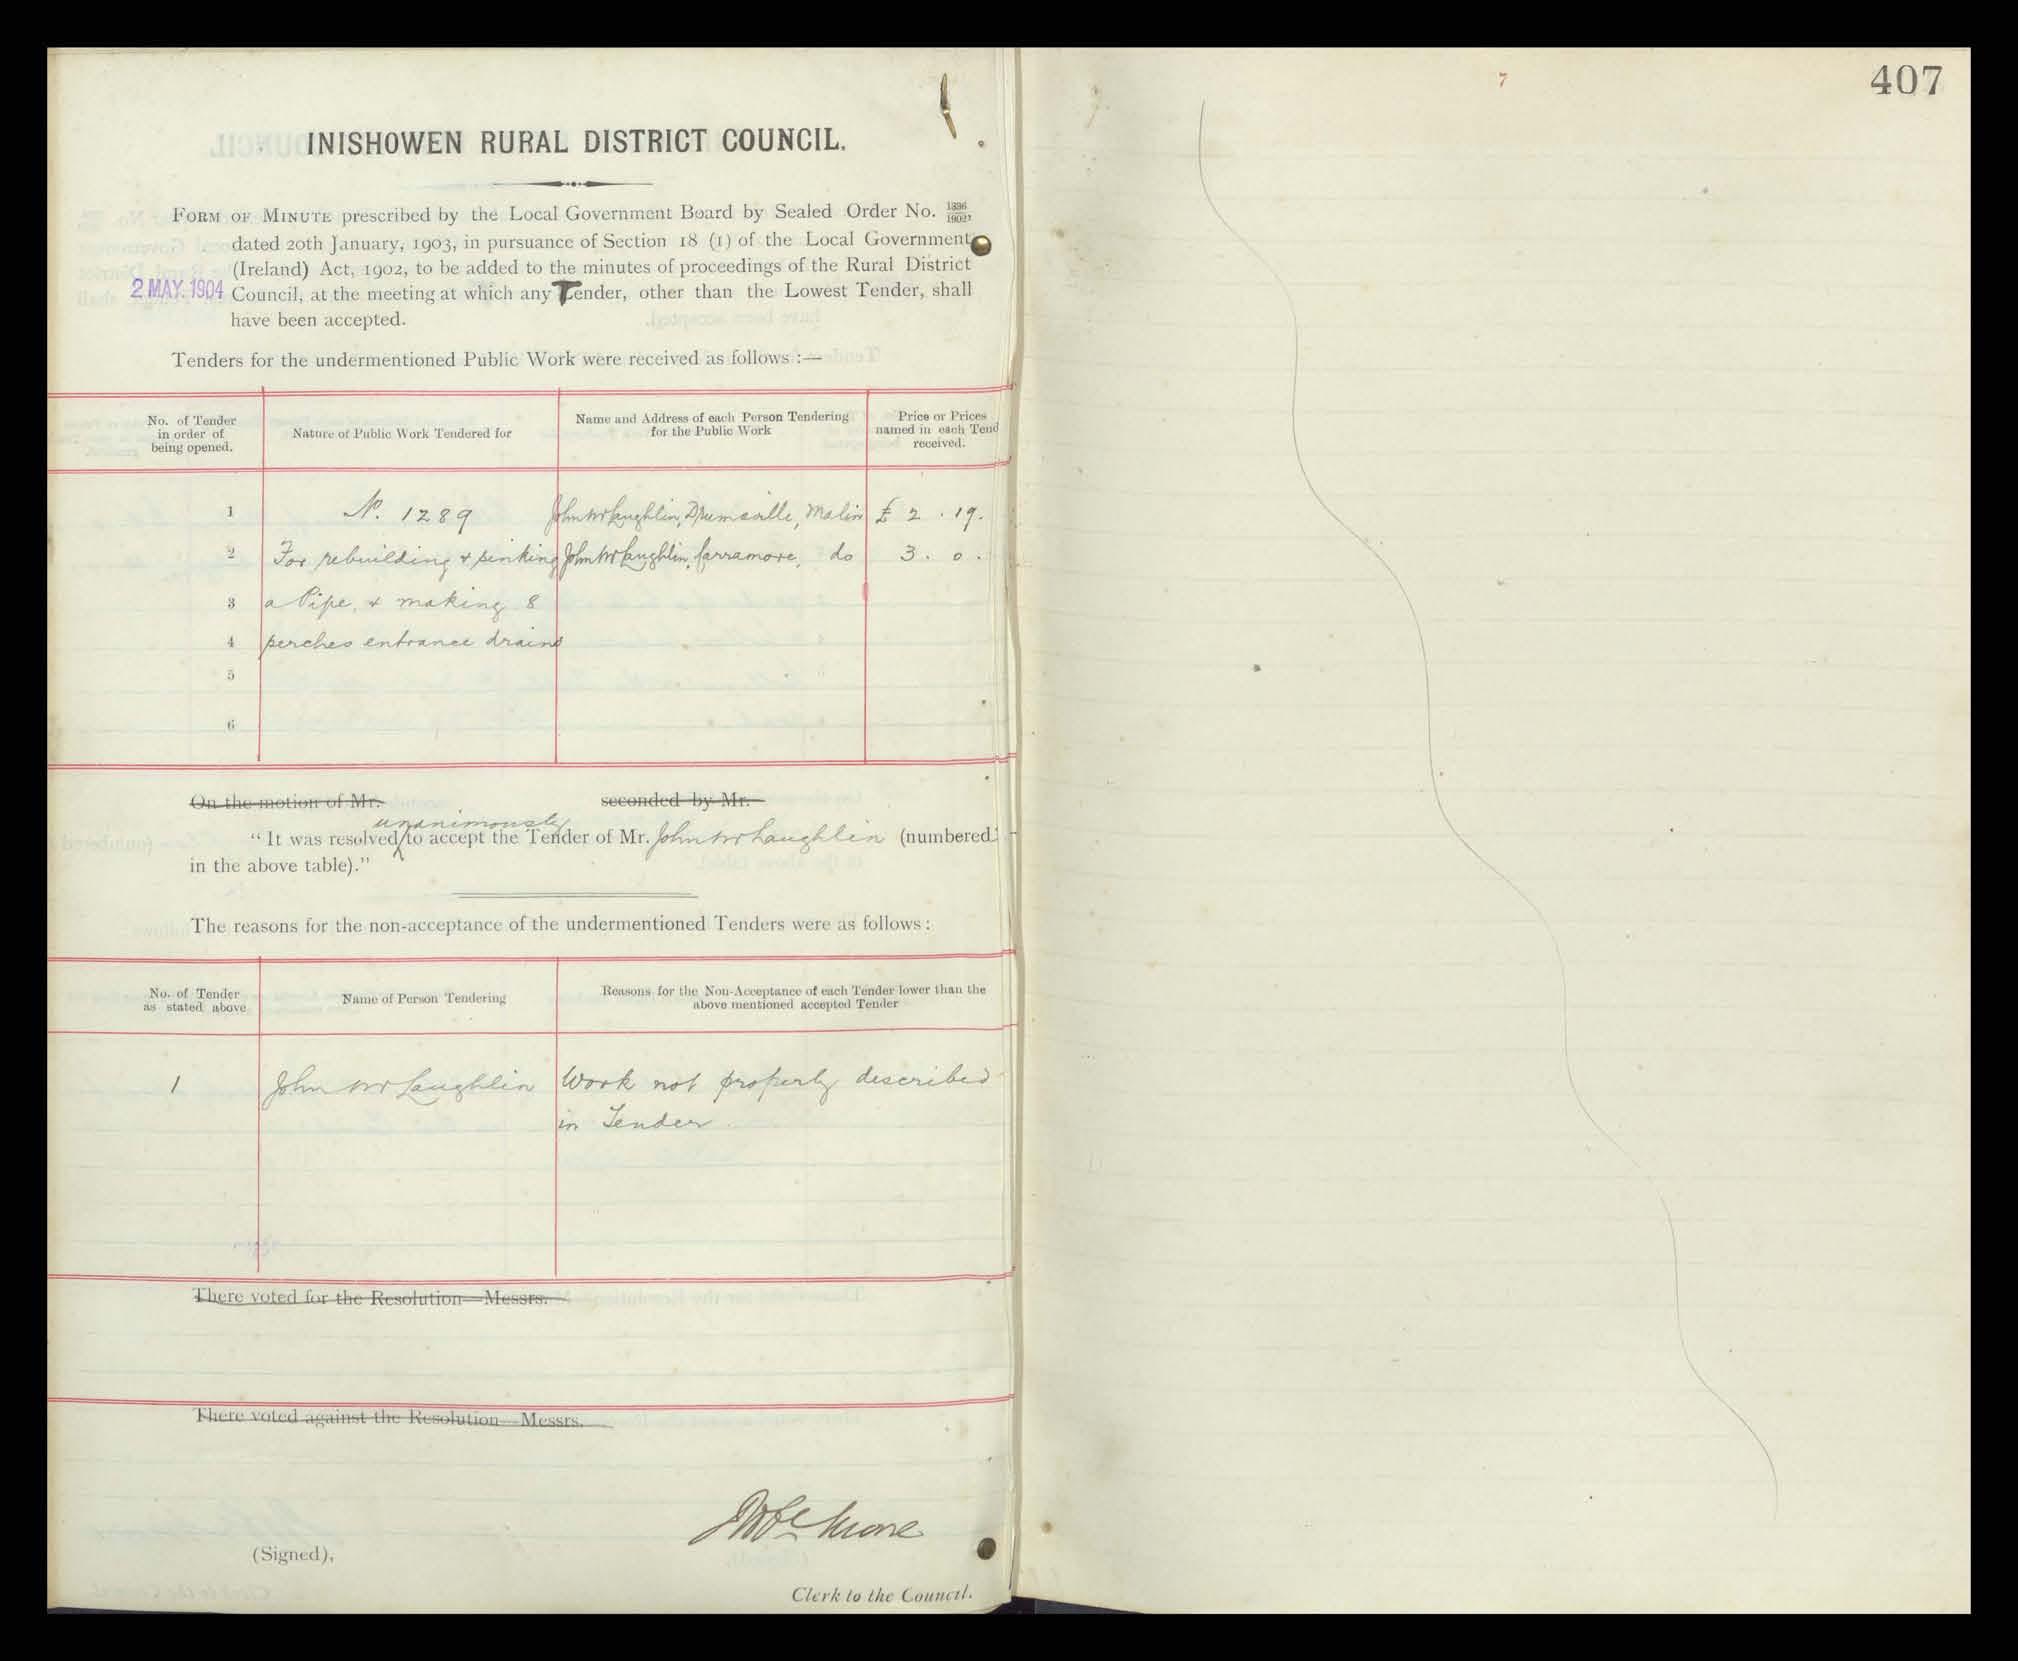 INISHOWEN RURAL DISTRICT COUNCIL.
FORM OF MINUTE prescribed by the Local Government Board by Sealed Order No. 1336/1902,
dated 20th January, 1903, in pursuance of Section 18 (1) of the Local Government
(Ireland) Act, 1902, to be added to the minutes of proceedings of the Rural District
2 MAY. 1904 Council, at the meeting at which any Tender, other than the Lowest Tender, shall
have been accepted.
Tenders for the undermentioned Public Work were received as follows :—
No. of Tender in order of being opened.
Nature of Public Work Tendered for
Name and Address of each Person Tendering for the Public Work
Price or Prices named in each Tend received.
1 No. 1289 John McLaughlin, Drumaville, Malin £ 2 . 19 .
2 For rebuilding & sinking John McLaughlin, Carramore, do 3 . 0 .
3 a Pipe, & making 8
4 perches entrance drains
5
6
On the motion of Mr. seconded by Mr.
unanimously
"It was resolved to accept the Tender of Mr. John McLaughlin (numbered
in the above table)."
The reasons for the non-acceptance of the undermentioned Tenders were as follows :
No. of Tender as stated above
Name of Person Tendering
Reasons for the Non-Acceptance of each Tender lower than the above mentioned accepted Tender
1 John McLaughlin Work not properly described
in Tender
There voted for the Resolution—Messrs.
There voted against the Resolution—Messrs.
(Signed),
Clerk to the Council.
7
407